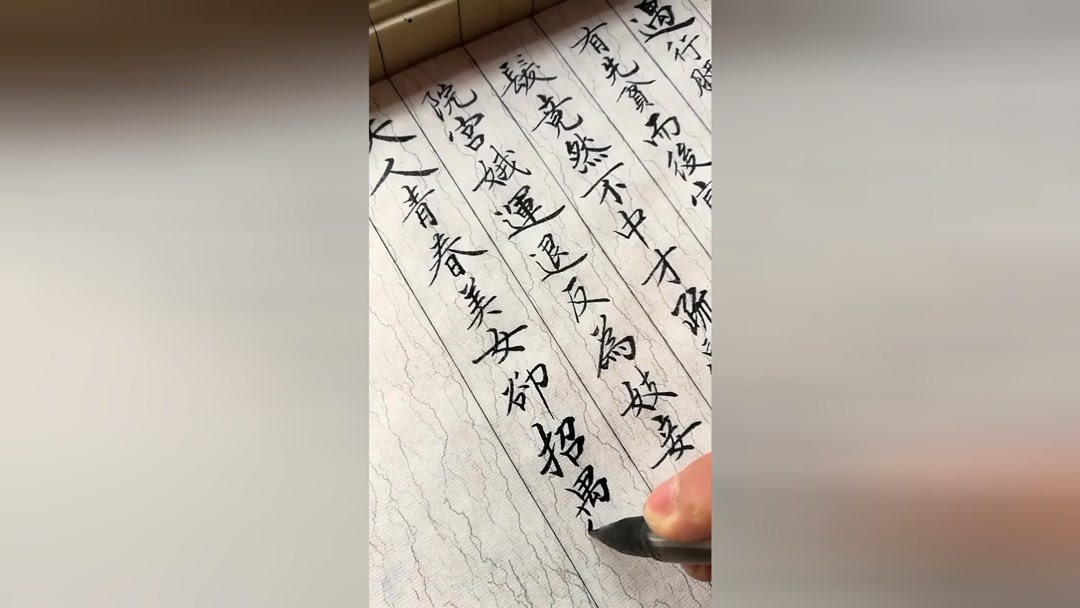 遇行
有先貧而後
髮竟然不中才疏
院宮娥運退反為妓妾
人青春美女卻招